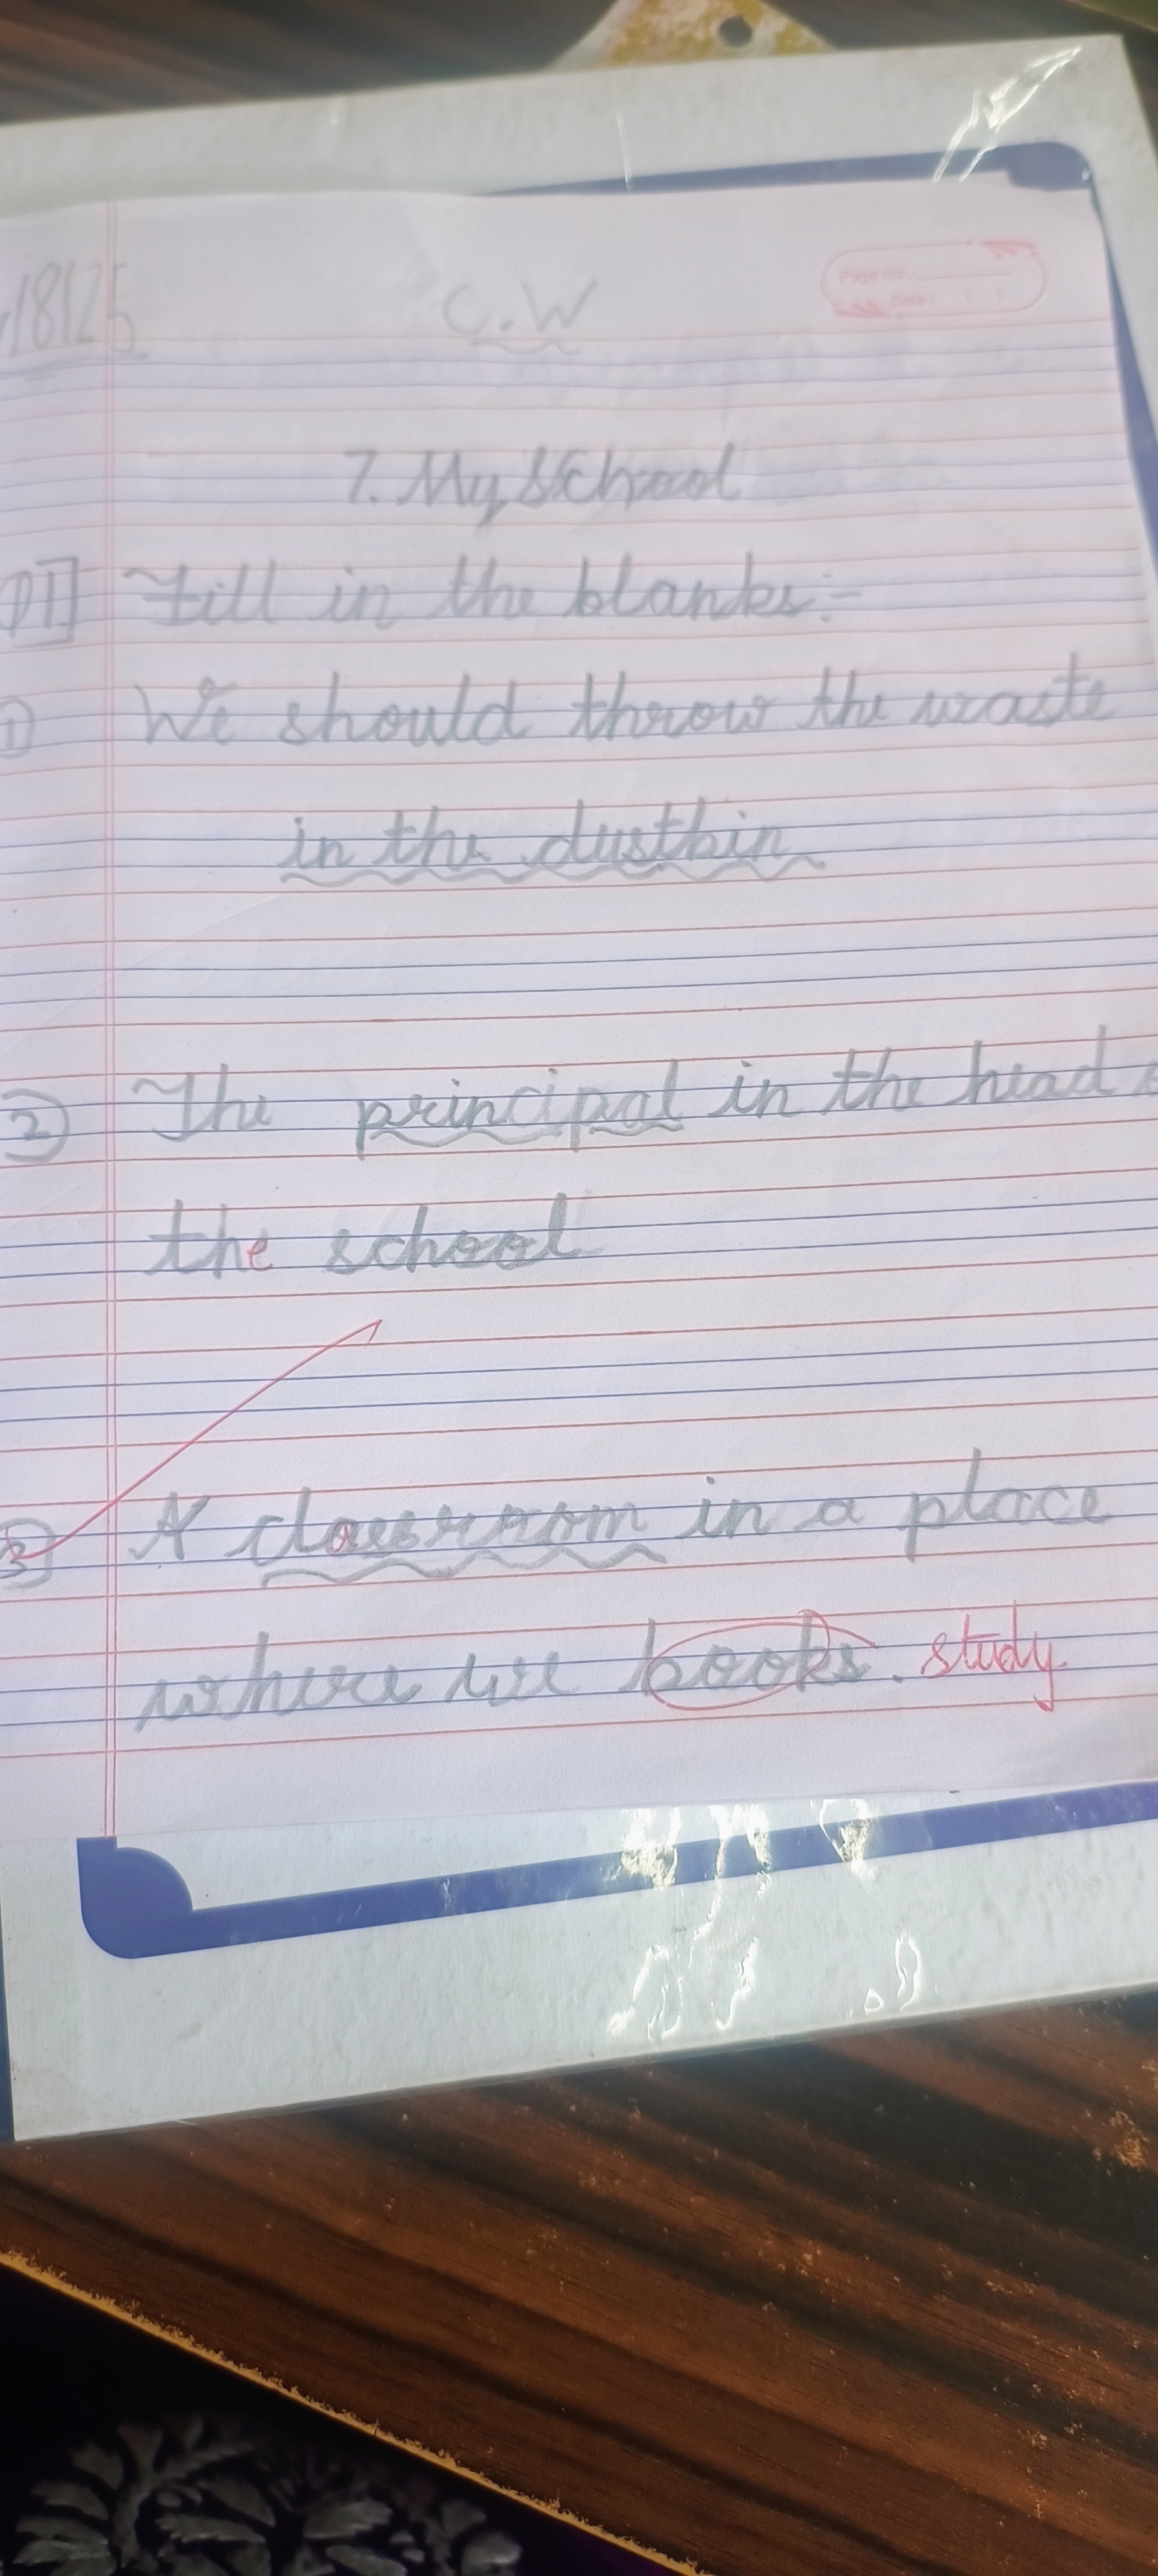 18125
C.W
Page No.
Date:
7. My School
Q1] Fill in the blanks:-
① We should throw the waste
in the dustbin
② The principal in the head
the school
③ A classroom in a place
where we books. study